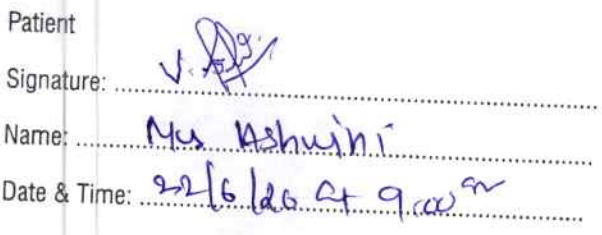 Patient
Signature: ....................
Name: Mrs Ashwini
Date & Time: 22/6/26 at 9.00 am